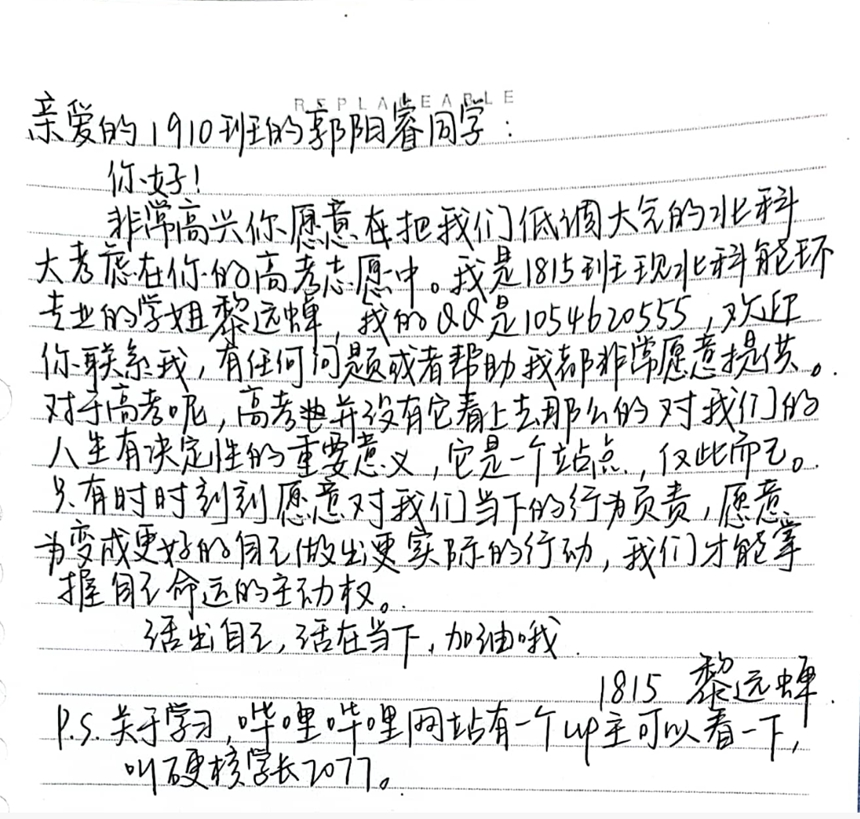 REPLACEABLE
亲爱的1910班的郭阳睿同学:
你好!
非常高兴你愿意在把我们低调大气的北科
大考虑在你的高考志愿中。我是1815班现北科能环
专业的学姐黎远蝉,我的QQ是1054620555,欢迎
你联系我,有任何问题或者帮助我都非常愿意提供。
对于高考呢,高考也并没有它看上去那么的对我们的
人生有决定性的重要意义,它是一个站点,仅此而已。
只有时时刻刻愿意对我们当下的行为负责,愿意
为变成更好的自己做出更实际的行动,我们才能掌
握自己命运的主动权。
活出自己,活在当下,加油哦.
1815 黎远蝉.
P.S.关于学习,哔哩哔哩网站有一个up主可以看一下,
叫硬核学长2077。